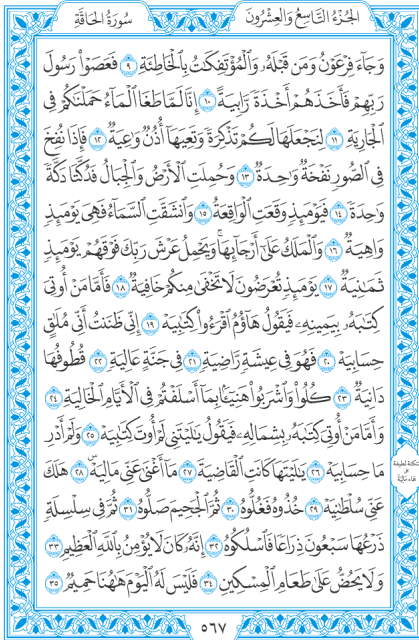 الجزء التاسع والعشرون
سورة الحاقة
وَجَآءَ فِرْعَوْنُ وَمَن قَبْلَهُۥ وَٱلْمُؤْتَفِكَٰتُ بِٱلْخَاطِئَةِ ٩ فَعَصَوْا۟ رَسُولَ
رَبِّهِمْ فَأَخَذَهُمْ أَخْذَةً رَّابِيَةً ١٠ إِنَّا لَمَّا طَغَا ٱلْمَآءُ حَمَلْنَٰكُمْ فِى
ٱلْجَارِيَةِ ١١ لِنَجْعَلَهَا لَكُمْ تَذْكِرَةً وَتَعِيَهَآ أُذُنٌ وَٰعِيَةٌ ١٢ فَإِذَا نُفِخَ
فِى ٱلصُّورِ نَفْخَةٌ وَٰحِدَةٌ ١٣ وَحُمِلَتِ ٱلْأَرْضُ وَٱلْجِبَالُ فَدُكَّتَا دَكَّةً
وَٰحِدَةً ١٤ فَيَوْمَئِذٍ وَقَعَتِ ٱلْوَاقِعَةُ ١٥ وَٱنشَقَّتِ ٱلسَّمَآءُ فَهِىَ يَوْمَئِذٍ
وَاهِيَةٌ ١٦ وَٱلْمَلَكُ عَلَىٰٓ أَرْجَآئِهَا ۚ وَيَحْمِلُ عَرْشَ رَبِّكَ فَوْقَهُمْ يَوْمَئِذٍ
ثَمَٰنِيَةٌ ١٧ يَوْمَئِذٍ تُعْرَضُونَ لَا تَخْفَىٰ مِنكُمْ خَافِيَةٌ ١٨ فَأَمَّا مَنْ أُوتِىَ
كِتَٰبَهُۥ بِيَمِينِهِۦ فَيَقُولُ هَآؤُمُ ٱقْرَءُوا۟ كِتَٰبِيَهْ ١٩ إِنِّى ظَنَنتُ أَنِّى مُلَٰقٍ
حِسَابِيَهْ ٢٠ فَهُوَ فِى عِيشَةٍ رَّاضِيَةٍ ٢١ فِى جَنَّةٍ عَالِيَةٍ ٢٢ قُطُوفُهَا
دَانِيَةٌ ٢٣ كُلُوا۟ وَٱشْرَبُوا۟ هَنِيٓـًٔۢا بِمَآ أَسْلَفْتُمْ فِى ٱلْأَيَّامِ ٱلْخَالِيَةِ ٢٤
وَأَمَّا مَنْ أُوتِىَ كِتَٰبَهُۥ بِشِمَالِهِۦ فَيَقُولُ يَٰلَيْتَنِى لَمْ أُوتَ كِتَٰبِيَهْ ٢٥ وَلَمْ أَدْرِ
مَا حِسَابِيَهْ ٢٦ يَٰلَيْتَهَا كَانَتِ ٱلْقَاضِيَةَ ٢٧ مَآ أَغْنَىٰ عَنِّى مَالِيَهْ ۜ ٢٨ هَلَكَ
عَنِّى سُلْطَٰنِيَهْ ٢٩ خُذُوهُ فَغُلُّوهُ ٣٠ ثُمَّ ٱلْجَحِيمَ صَلُّوهُ ٣١ ثُمَّ فِى سِلْسِلَةٍ
ذَرْعُهَا سَبْعُونَ ذِرَاعًا فَٱسْلُكُوهُ ٣٢ إِنَّهُۥ كَانَ لَا يُؤْمِنُ بِٱللَّهِ ٱلْعَظِيمِ ٣٣
وَلَا يَحُضُّ عَلَىٰ طَعَامِ ٱلْمِسْكِينِ ٣٤ فَلَيْسَ لَهُ ٱلْيَوْمَ هَٰهُنَا حَمِيمٌ ٣٥
سكتة لطيفة
على
هاء مالية
٥٦٧